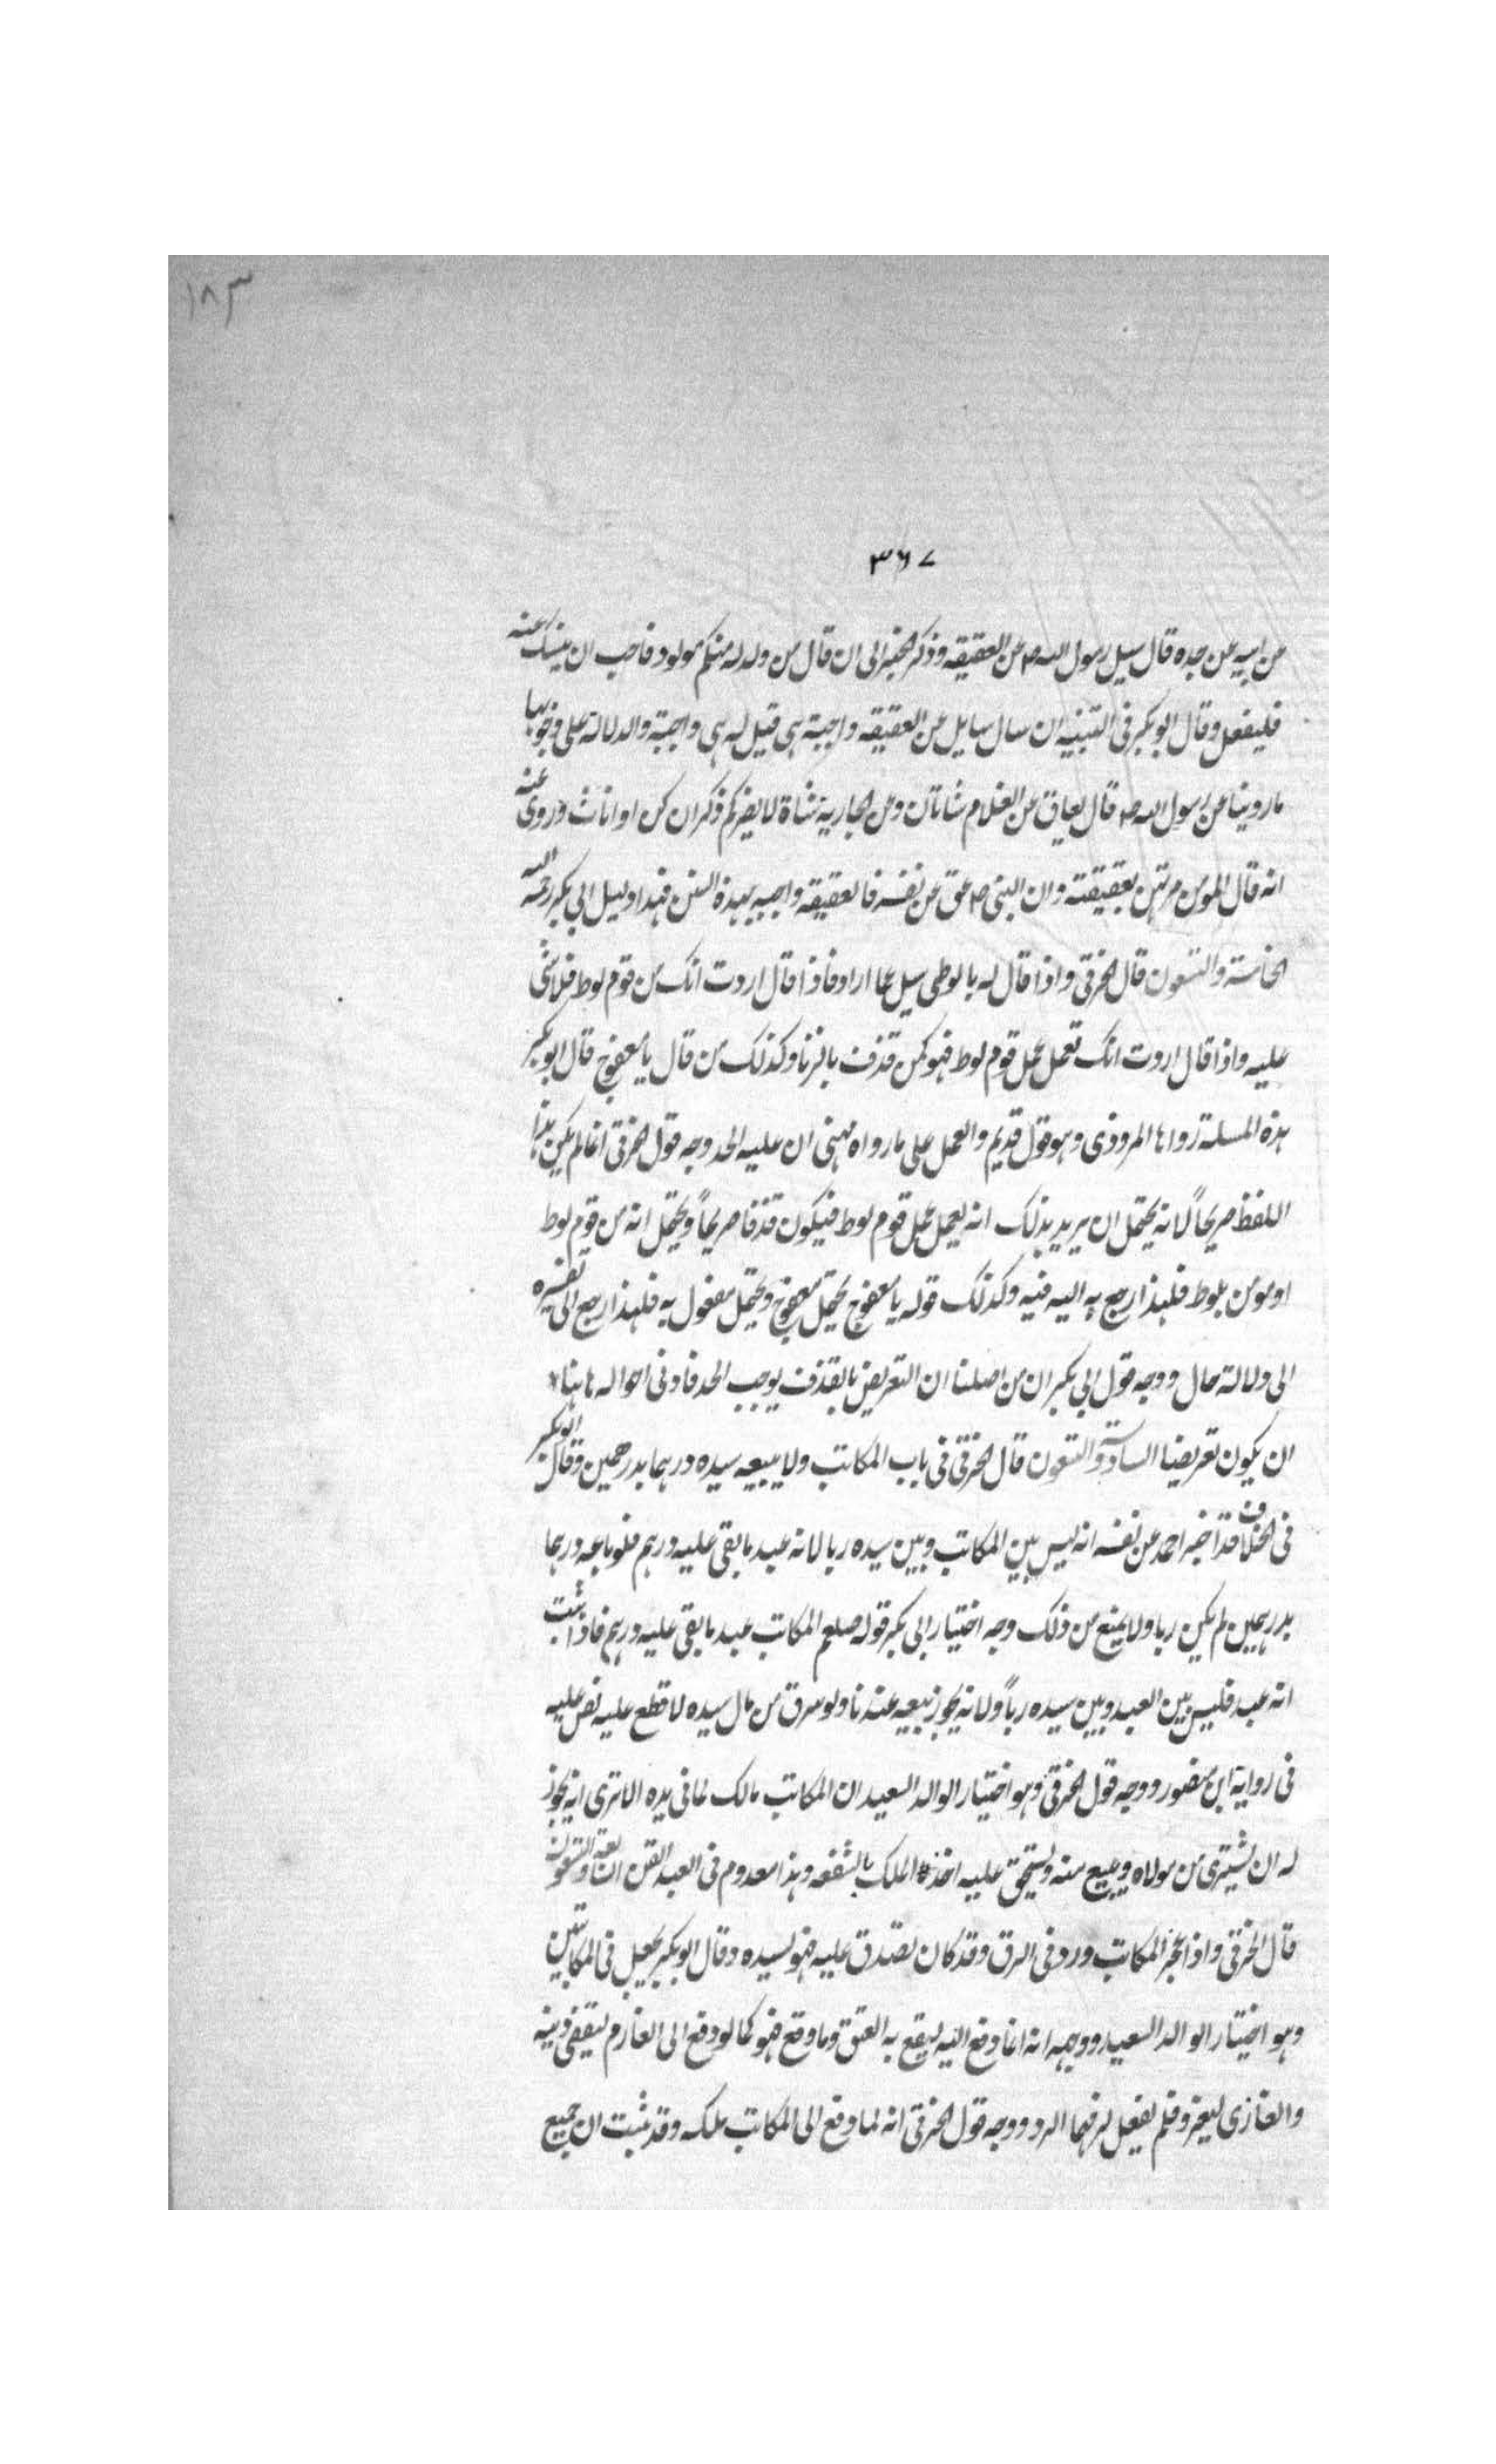 ١٨٣
٣٦٧
عن ابيه عن جده قال سيل رسول الله صم عن العقيقه وذكر الخبر الى ان قال من ولد له منكم مولود فاحب ان ينسك عنه
فليفعل وقال ابو بكر فى التنبيه ان سال سايل عن العقيقه واجبة هى قيل له هى واجبة والدلالة على وجوبها
ما روينا عن رسول الله صم قال يعاق عن الغلام شاتان وعن الجارية شاة لا يضركم ذكران كن او اناث وروى عنه
انه قال المومن مرتهن بعقيقته وان النبى صم عق عن نفسه فالعقيقه واجبه بهذة السنن فهذا دليل ابي بكر رحمه الله
الخامسة والتسعون قال الخرقى واذا قال له يا لوطى سيل عما اراد فاذا قال اردت انك من قوم لوط فلا شى
عليه واذا قال اردت انك تعمل عمل قوم لوط فهو كمن قذف بالزنا وكذلك من قال يا معفوج قال ابو بكر
هذه المسلة رواها المروذى وهو قول قديم والعمل على ما رواه مهنى ان عليه الحد وجه قول الخرقى انما لم يكن هذا
اللفظ صريحاً لانه يحتمل ان يريد بذلك انه يعمل عمل قوم لوط فيكون قذفا صريحاً ويحتمل انه من قوم لوط
او مومن بلوط فلهذا رجع به اليه فيه وكذلك قوله يا معفوج يحتمل معفوج ويحتمل مفعول به فلهذا رجع الى تفسيره
الى دلالة حال ووجه قول ابي بكر ان من اصلنا ان التعريض بالقذف يوجب الحد فادنى احواله هاهنا
ان يكون تعريضا السادسة والتسعون قال الخرقى فى باب المكاتب ولا يبيعه سيده درهما بدرهمين وقال ابو بكر
فى الخلاف قد اخبر احمد عن نفسه انه ليس بين المكاتب وبين سيده ربا لانه عبد ما بقى عليه درهم فلو باعه درهما
بدرهمين لم يكن ربا ولا يمنع من ذلك وجه اختيار ابى بكر قوله صلعم المكاتب عبد ما بقى عليه درهم فاذا ثبت
انه عبد فليس بين العبد وبين سيده رباً ولانه يجوز بيعه عندنا ولو سرق من مال سيده لا قطع عليه نص عليه
فى رواية ابن منصور ووجه قول الخرقى وهو اختيار الوالد السعيد ان المكاتب مالك لما فى يده الا ترى انه يجوز
له ان يشترى من مولاه ويبيع منه ويستحق عليه اخذ الملك بالشفعه وهذا معدوم فى العبد القن السابعة والتسعون
قال الخرقى واذا عجز المكاتب ورد فى الرق وقد كان تصدق عليه فهو لسيده وقال ابو بكر يجعل فى المكاتبين
وهو اختيار الوالد السعيد ووجهه انه انما دفع اليه ليقع به العتق وما وقع فهو كما لو دفع الى الغارم ليقضى دينه
والغازى ليغزو فلم يفعل لزمهما الرد ووجه قول الخرقى انه لما دفع الى المكاتب ملكه وقد ثبت ان جميع